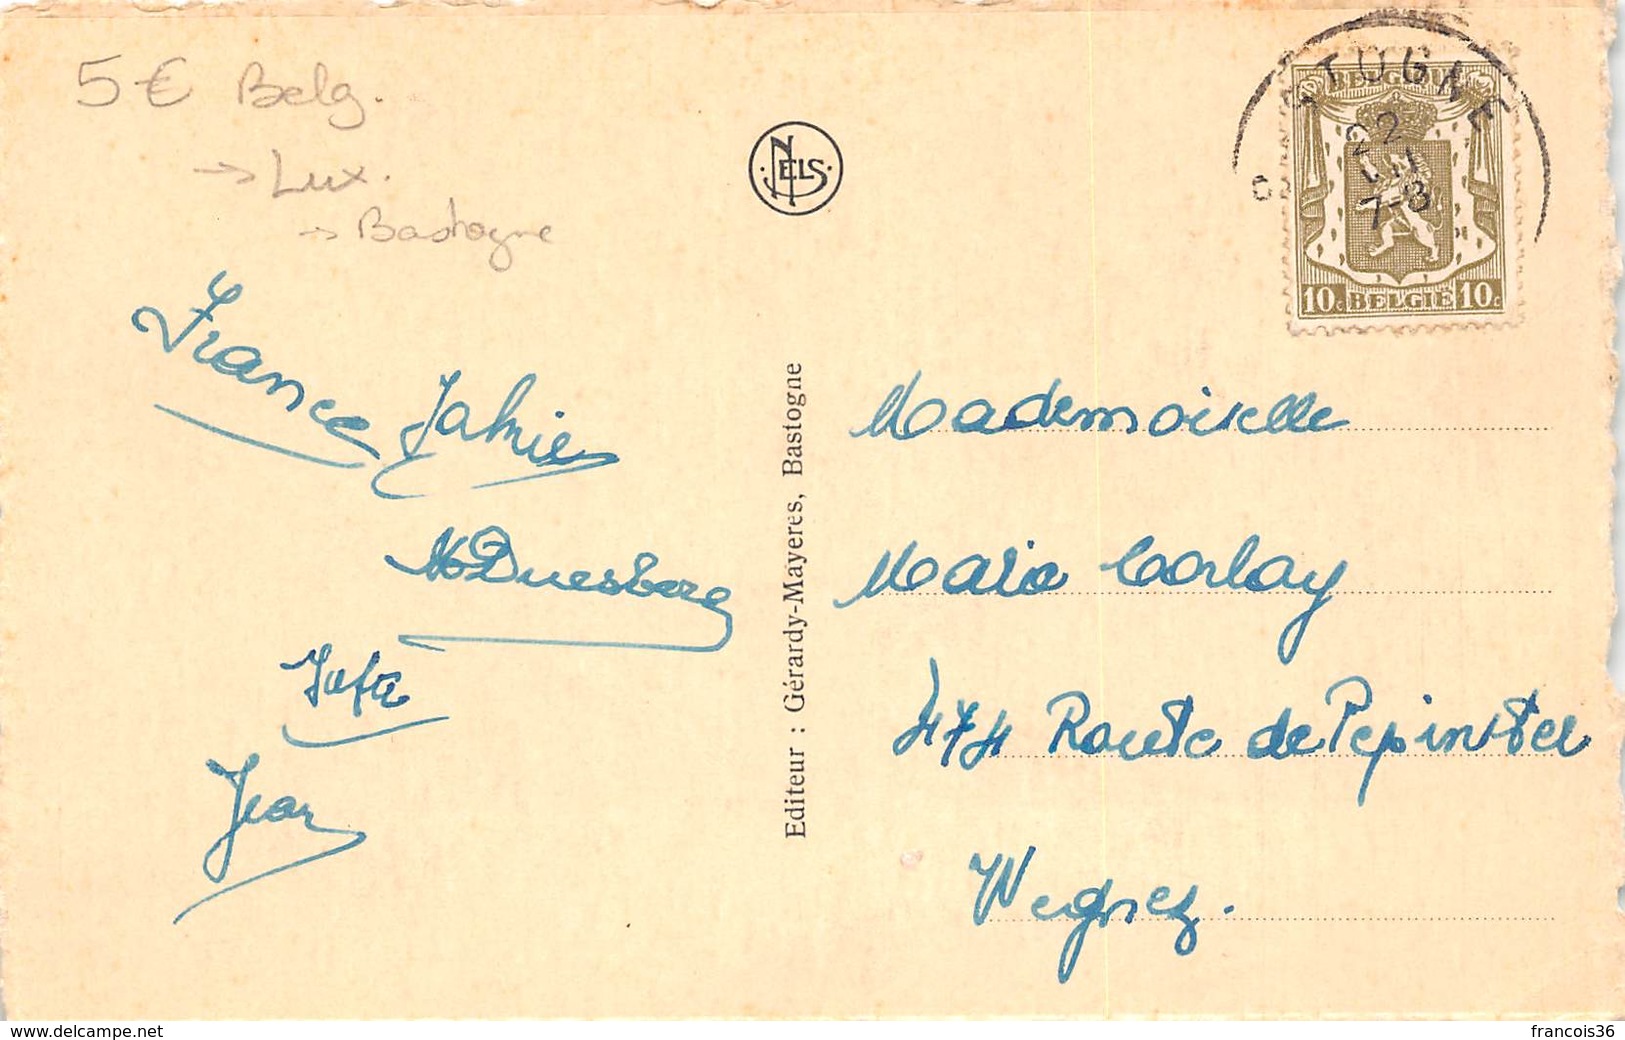 5 € Belg.
→ Lux.
→ Bastogne
NELS
STOGNE
22
7-8
BELGIQUE
10c BELGIË 10c
France
M Duesberg
Jean
Editeur : Gérardy-Mayeres, Bastogne
Mademoiselle
Maria Corlay
474 Route de Pepinster
Wegnez.
www.delcampe.net
francois36